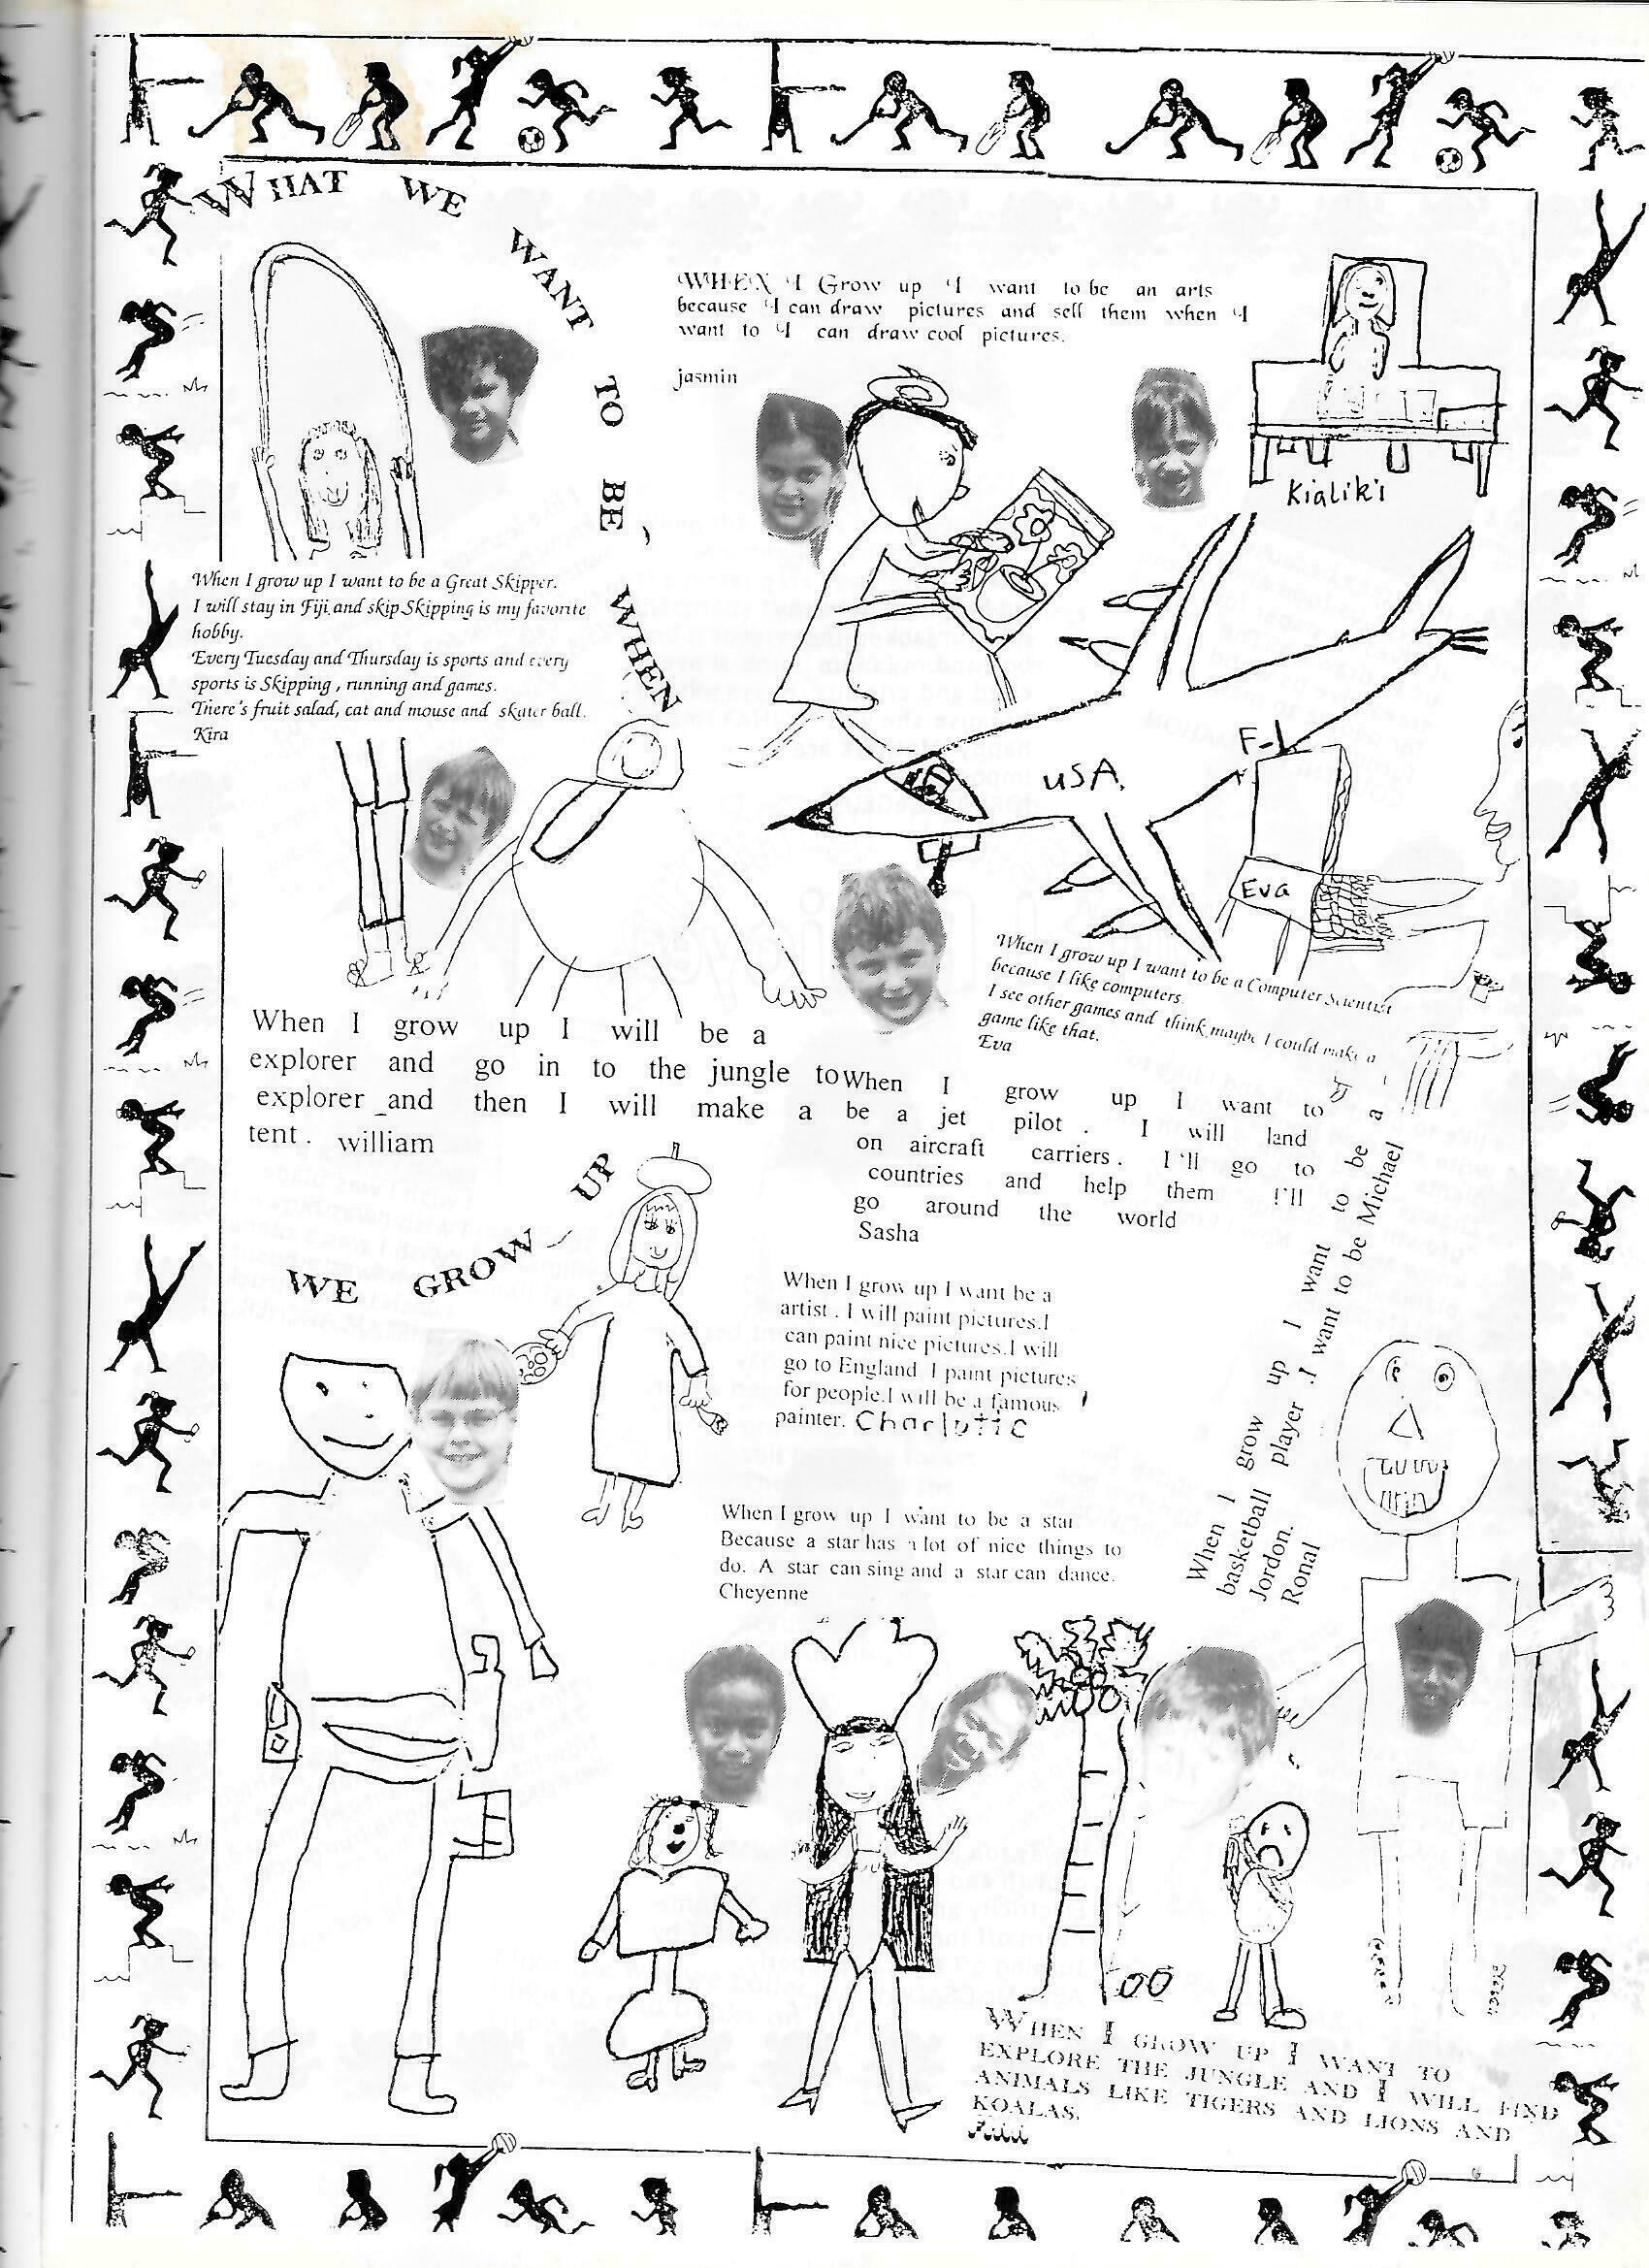 WHAT WE WANT TO BE WHEN
WE GROW UP
WHEN I Grow up I want to be an arts
because I can draw pictures and sell them when I
want to I can draw cool pictures.
jasmin
Kialiki
When I grow up I want to be a Great Skipper.
I will stay in Fiji,and skip.Skipping is my favorite
hobby.
Every Tuesday and Thursday is sports and every
sports is Skipping , running and games.
There's fruit salad, cat and mouse and skater ball.
Kira
USA.
F-1
Eva
When I grow up I want to be a Computer Scientist
because I like computers.
I see other games and think maybe I could make a
game like that.
Eva
When I grow up I will be a
explorer and go in to the jungle to
explorer and then I will make a
tent. william
When I grow up I want to
be a jet pilot . I will land
on aircraft carriers. I'll go to
countries and help them I'll
go around the world
Sasha
When I grow up I want be a
artist . I will paint pictures.I
can paint nice pictures.I will
go to England I paint pictures
for people.I will be a famous
painter. Charlotte
When I grow up I want to be a
basketball player .I want to be Michael
Jordon.
Ronal
When I grow up I want to be a star
Because a star has a lot of nice things to
do. A star can sing and a star can dance.
Cheyenne
WHEN I GROW UP I WANT TO
EXPLORE THE JUNGLE AND I WILL FIND
ANIMALS LIKE TIGERS AND LIONS AND
KOALAS.